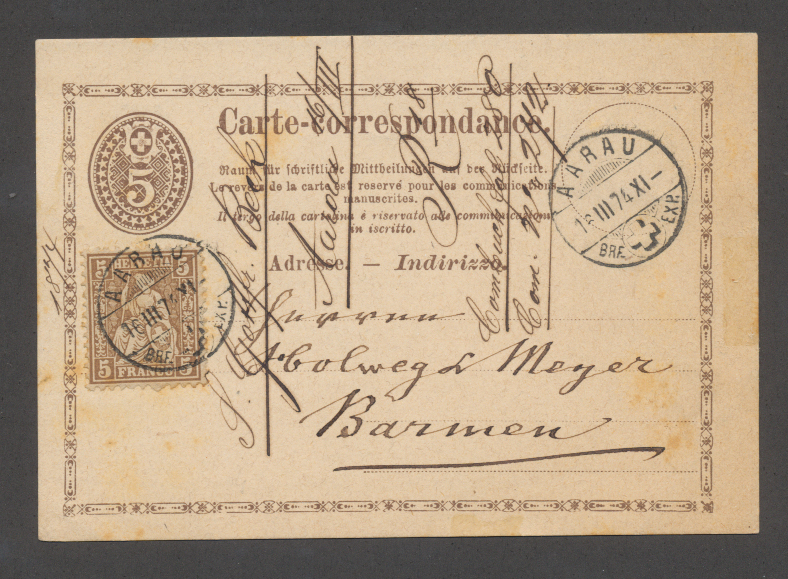 Carte-correspondance.
5
Raum für schriftliche Mittheilungen auf der Rückseite.
Le revers de la carte est reservé pour les communications
manuscrites.
Il tergo della cartolina è riservato alle communicazioni
in iscritto.
Adresse. — Indirizzo.
Herren
Holweg & Meyer
Barmen
AARAU
16 III 74 XI –
BRF. EXP.
5 HELVETIA 5
AARAU
16 III 74 XI –
BRF. EXP.
5 FRANCO 5
1874
Aarau 16/III